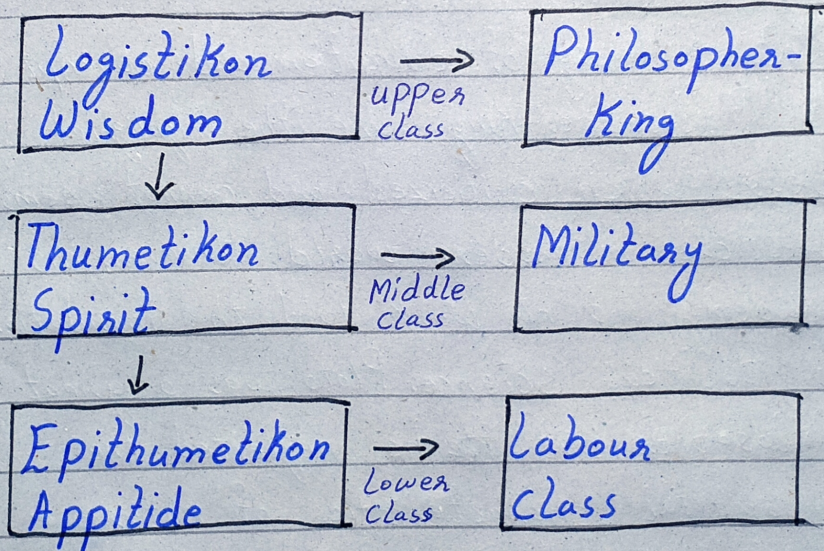 Logistikon
Wisdom
upper
class
Philosopher-
King
Thumetikon
Spirit
Middle
Class
Military
Epithumetikon
Appitide
Lower
Class
Labour
Class